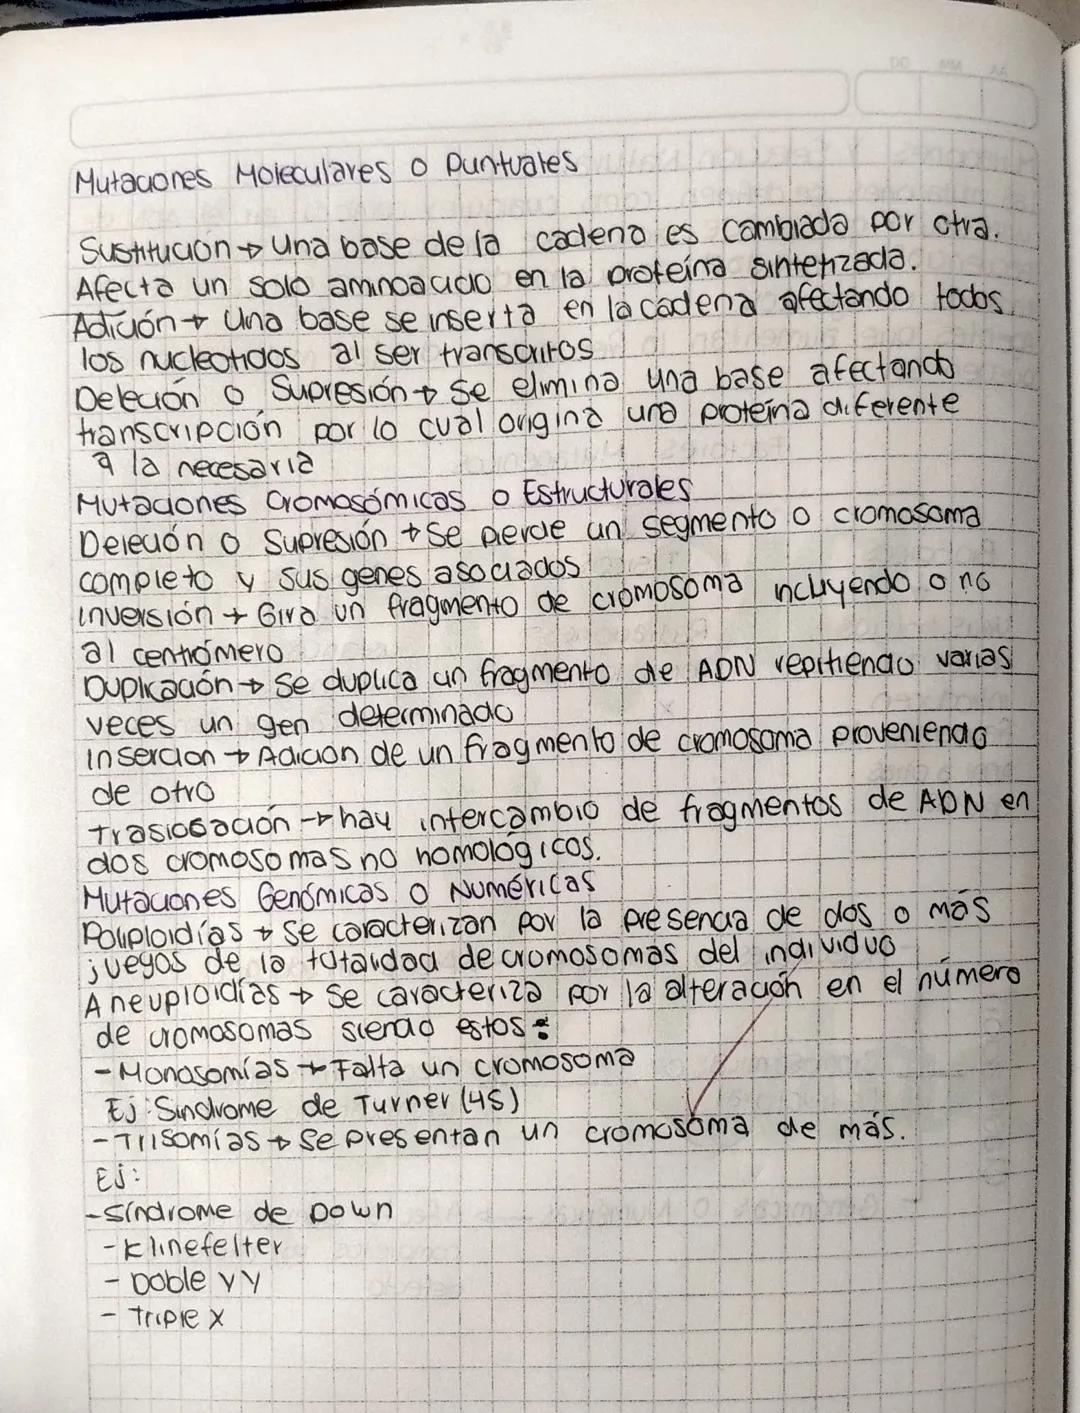 Mutaciones Moleculares o Puntuales
Sustitución → Una base de la cadena es cambiada por otra.
Afecta un solo aminoacido en la proteína sintetizada.
Adición → Una base se inserta en la cadena afectando todos
los nucleotidos al ser transcritos
Deleción o Supresión → Se elimina una base afectando
transcripción por lo cual origina una proteína diferente
a la necesaria
Mutaciones Cromosómicas o Estructurales
Deleción o Supresión → Se pierde un segmento o cromosoma
completo y sus genes asociados
Inversión → Gira un fragmento de cromosoma incluyendo o no
al centrómero
Duplicación → Se duplica un fragmento de ADN repitiendo varias
veces un gen determinado
Insercion → Adicion de un fragmento de cromosoma proveniendo
de otro
Traslocación → hay intercambio de fragmentos de ADN en
dos cromosomas no homológicos.
Mutaciones Genómicas o Numéricas
Poliploidías → Se caracterizan por la presencia de dos o más
juegos de la totalidad de cromosomas del individuo
Aneuploidías → Se caracteriza por la alteración en el número
de cromosomas siendo estos:
- Monosomías → Falta un cromosoma
Ej: Sindrome de Turner (45)
- Trisomías → Se presentan un cromosoma de más.
Ej:
- Síndrome de Down
- Klinefelter
- Doble YY
- Triple X